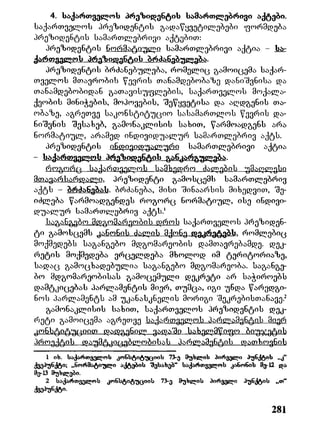 4. საქართველოს პრეზიდენტის სამართლებრივი აქტები.
საქართველოს პრეზიდენტის გადაწყვეტილებები ფორმდება
პრეზიდენტის სამართლებრივი აქტებით.
პრეზიდენტის ნორმატიული სამართლებრივი აქტია – სა-
ქართველოს პრეზიდენტის ბრძანებულება.
პრეზიდენტის ბრძანებულება, რომელიც გამოიცემა საქარ-
თველოს მთავრობის წევრის თანამდებობაზე დანიშვნისა და
თანამდებობიდან გათავისუფლების, საქართველოს მოქალა-
ქეობის მინიჭების, მოპოვების, შეწყვეტისა და აღდგენის თა-
ობაზე, აგრეთვე საკონსტიტუციო სასამართლოს წევრის და-
ნიშვნის შესახებ, გამონაკლისის სახით, წარმოადგენს არა
ნორმატიულ, არამედ ინდივიდუალურ სამართლებრივ აქტს.
პრეზიდენტის ინდივიდუალური სამართლებრივი აქტია
– საქართველოს პრეზიდენტის განკარგულება.
როგორც საქართველოს სამხედრო ძალების უმაღლესი
მთავარსარდალი, პრეზიდენტი გამოსცემს სამართლებრივ
აქტს – ბრძანებას. ბრძანება, მისი შინაარსის მიხედვით, შე-
იძლება წარმოადგენდეს როგორც ნორმატიულ, ისე ინდივი-
დუალურ სამართლებრივ აქტს.¹
საგანგებო მდგომარეობის დროს საქართველოს პრეზიდენ-
ტი გამოსცემს კანონის ძალის მქონე დეკრეტებს, რომლებიც
მოქმედებს საგანგებო მდგომარეობის დამთავრებამდე. დეკ-
რეტის მოქმედება ვრცელდება მხოლოდ იმ ტერიტორიაზე,
სადაც გამოცხადებულია საგანგებო მდგომარეობა. საგანგე-
ბო მდგომარეობისას გამოცემული დეკრეტი არ საჭიროებს
დამტკიცებას პარლამენტის მიერ, თუმცა, იგი უნდა წარედგი-
ნოს პარლამენტს ამ უკანასკნელის მორიგი შეკრებისთანავე.²
გამონაკლისის სახით, საქართველოს პრეზიდენტის დეკ-
რეტი გამოიცემა აგრეთვე საქართველოს პარლამენტის მიერ
კონსტიტუციით დადგენილ ვადაში სახელმწიფო ბიუჯეტის
პროექტის დაუმტკიცებლობისას პარლამენტის დათხოვნის
1 იხ. საქართველოს კონსტიტუციის 73-ე მუხლის პირველი პუნქტის „კ“
ქვეპუნქტი; „ნორმატიული აქტების შესახებ“ საქართველოს კანონის მე-12 და
მე-13 მუხლები.
2 საქართველოს კონსტიტუციის 73-ე მუხლის პირველი პუნქტის „თ“
ქვეპუნქტი.
281